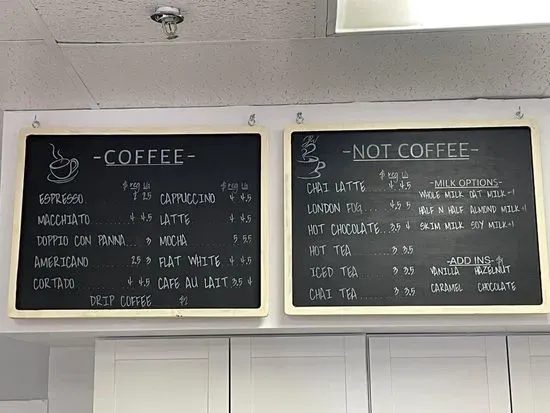 -COFFEE-
$ reg LG
ESPRESSO 2 2.5
MACCHIATO 4 4.5
DOPPIO CON PANNA 3
AMERICANO 2.5 3
CORTADO 4 4.5
$ reg LG
CAPPUCCINO 4 4.5
LATTE 4 4.5
MOCHA 5 5.5
FLAT WHITE 4 4.5
CAFE AU LAIT 3.5 4
DRIP COFFEE $2
-NOT COFFEE-
$ reg LG
CHAI LATTE 4 4.5
LONDON FOG 4.5 5
HOT CHOCOLATE 3.5 4
HOT TEA 3 3.5
ICED TEA 3 3.5
CHAI TEA 3 3.5
-MILK OPTIONS-
WHOLE MILK OAT MILK +1
HALF N HALF ALMOND MILK +1
SKIM MILK SOY MILK +1
-ADD INS- $1
VANILLA HAZELNUT
CARAMEL CHOCOLATE